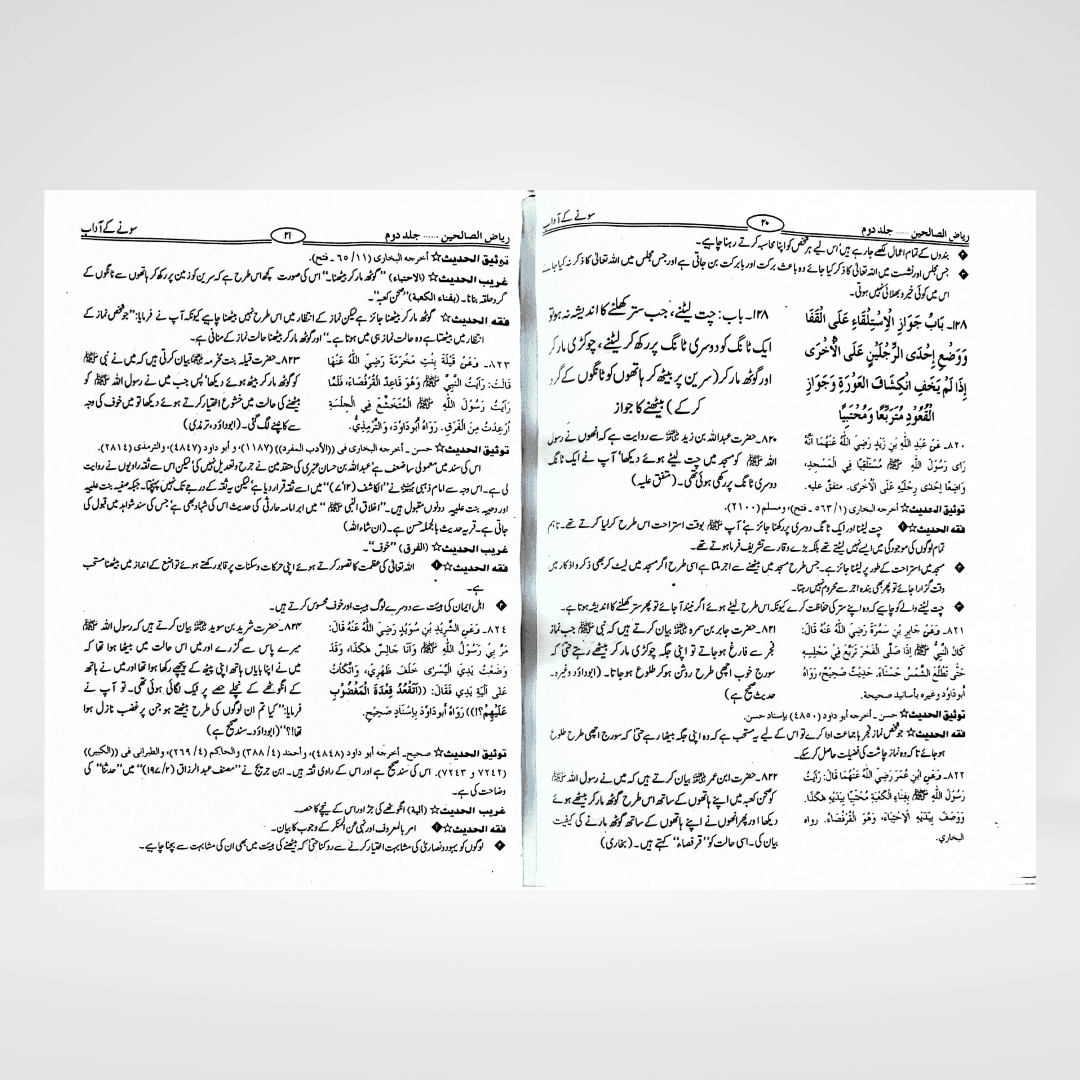 ریاض الصالحین ...... جلد دوم
۲۰
سونے کے آداب
بندوں کے تمام اعمال لکھے جا رہے ہیں' اس لیے ہر شخص کو اپنا محاسبہ کرتے رہنا چاہیے۔
جس مجلس اور نشست میں اللہ تعالیٰ کا ذکر کیا جائے وہ باعث برکت اور بابرکت بن جاتی ہے اور جس مجلس میں اللہ تعالیٰ کا ذکر نہ کیا جائے
اس میں کوئی خیر و بھلائی نہیں ہوتی۔
۱۲۸۔ بَابُ جَوَازِ الْاِسْتِلْقَاءِ عَلَى الْقَفَا
وَوَضْعِ إِحْدَى الرِّجْلَيْنِ عَلَى الْأُخْرَى
إِذَا لَمْ يَخَفِ انْكِشَافَ الْعَوْرَةِ وَجَوَازِ
الْقُعُودِ مُتَرَبِّعًا وَمُحْتَبِيًا
۱۲۸۔ باب: چت لیٹنے، جب ستر کھلنے کا اندیشہ نہ ہو تو
ایک ٹانگ کو دوسری ٹانگ پر رکھ کر لیٹنے، چوکڑی مار کر
اور گوٹھ مار کر (سرین پر بیٹھ کر ہاتھوں کو ٹانگوں کے گرد
کر کے) بیٹھنے کا جواز
۸۲۰۔ عَنْ عَبْدِ اللَّهِ بْنِ زَيْدٍ رَضِيَ اللَّهُ عَنْهُمَا أَنَّهُ
رَأَى رَسُولَ اللَّهِ ﷺ مُسْتَلْقِيًا فِي الْمَسْجِدِ،
وَاضِعًا إِحْدَى رِجْلَيْهِ عَلَى الْأُخْرَى. متفق عليه.
۸۲۰۔ حضرت عبداللہ بن زید ؓ سے روایت ہے کہ انھوں نے رسول
اللہ ﷺ کو مسجد میں چت لیٹے ہوئے دیکھا' آپ نے ایک ٹانگ
دوسری ٹانگ پر رکھی ہوئی تھی۔ (متفق علیہ)
توثيق الحديث☆ أخرجه البخاری (۱/ ۵۶۳ ۔ فتح)، ومسلم (۲۱۰۰)۔
فقه الحديث☆ چت لیٹنا اور ایک ٹانگ دوسری پر رکھنا جائز ہے' آپ ﷺ بوقت استراحت اس طرح کر لیا کرتے تھے۔ تاہم
تمام لوگوں کی موجودگی میں ایسے نہیں لیٹتے تھے بلکہ بڑے وقار سے تشریف فرما ہوتے تھے۔
مسجد میں استراحت کے طور پر لیٹنا جائز ہے۔ جس طرح مسجد میں بیٹھنے سے اجر ملتا ہے اسی طرح اگر مسجد میں لیٹ کر بھی ذکر و اذکار میں
وقت گزارا جائے تو پھر بھی بندہ اجر سے محروم نہیں رہتا۔
چت لیٹنے والے کو چاہیے کہ وہ اپنے ستر کی حفاظت کرے کیونکہ اس طرح لیٹے ہوئے اگر نیند آ جائے تو پھر ستر کھلنے کا اندیشہ ہوتا ہے۔
۸۲۱۔ وَعَنْ جَابِرِ بْنِ سَمُرَةَ رَضِيَ اللَّهُ عَنْهُ قَالَ:
كَانَ النَّبِيُّ ﷺ إِذَا صَلَّى الْفَجْرَ تَرَبَّعَ فِي مَجْلِسِهِ
حَتَّى تَطْلُعَ الشَّمْسُ حَسْنَاءَ. حَدِيثٌ صَحِيحٌ، رَوَاهُ
أبو داوُد وغيره بأسانيد صحيحة.
۸۲۱۔ حضرت جابر بن سمرہ ؓ بیان کرتے ہیں کہ نبی ﷺ جب نماز
فجر سے فارغ ہو جاتے تو اپنی جگہ چوکڑی مار کر بیٹھے رہتے حتیٰ کہ
سورج خوب اچھی طرح روشن ہو کر طلوع ہو جاتا۔ (ابوداؤد وغیرہ۔
حدیث صحیح ہے)
توثيق الحديث☆ حسن۔ أخرجه أبو داود (۴۸۵۰) بإسناد حسن.
فقه الحديث☆ جو شخص نماز فجر باجماعت ادا کرے تو اس کے لیے یہ مستحب ہے کہ وہ اپنی جگہ بیٹھا رہے حتیٰ کہ سورج اچھی طرح طلوع
ہو جائے تاکہ وہ نماز چاشت کی فضیلت حاصل کر سکے۔
۸۲۲۔ وَعَنِ ابْنِ عُمَرَ رَضِيَ اللَّهُ عَنْهُمَا قَالَ: رَأَيْتُ
رَسُولَ اللَّهِ ﷺ بِفِنَاءِ الْكَعْبَةِ مُحْتَبِيًا بِيَدَيْهِ هٰكَذَا.
وَوَصَفَ بِيَدَيْهِ الِاحْتِبَاءَ، وَهُوَ الْقُرْفُصَاءُ. رواه
البخاري.
۸۲۲۔ حضرت ابن عمر ؓ بیان کرتے ہیں کہ میں نے رسول اللہ ﷺ
کو صحن کعبہ میں اپنے ہاتھوں کے ساتھ اس طرح گوٹھ مار کر بیٹھے ہوئے
دیکھا اور پھر انھوں نے اپنے ہاتھوں کے ساتھ گوٹھ مارنے کی کیفیت
بیان کی۔ اسی حالت کو "قرفصاء" کہتے ہیں۔ (بخاری)
ریاض الصالحین ...... جلد دوم
۲۱
سونے کے آداب
توثيق الحديث☆ أخرجه البخاری (۱۱/ ۶۵ ۔ فتح).
غريب الحديث☆ (الاحتباء) "گوٹھ مار کر بیٹھنا۔" اس کی صورت کچھ اس طرح ہے کہ سرین کو زمین پر رکھ کر ہاتھوں سے ٹانگوں کے
گرد حلقہ بنانا۔ (بفناء الكعبة) "صحن کعبہ"۔
فقه الحديث☆ گوٹھ مار کر بیٹھنا جائز ہے لیکن نماز کے انتظار میں اس طرح نہیں بیٹھنا چاہیے کیونکہ آپ نے فرمایا: "جو شخص نماز کے
انتظار میں بیٹھتا ہے وہ حالت نماز ہی میں ہوتا ہے۔" اور گوٹھ مار کر بیٹھنا حالت نماز کے منافی ہے۔
۸۲۳۔ وَعَنْ قَيْلَةَ بِنْتِ مَخْرَمَةَ رَضِيَ اللَّهُ عَنْهَا
قَالَتْ: رَأَيْتُ النَّبِيَّ ﷺ وَهُوَ قَاعِدٌ الْقُرْفُصَاءَ، فَلَمَّا
رَأَيْتُ رَسُولَ اللَّهِ ﷺ الْمُتَخَشِّعَ فِي الْجِلْسَةِ
أُرْعِدْتُ مِنَ الْفَرَقِ. رَوَاهُ أَبُودَاوُدَ، وَالتِّرْمِذِيُّ.
۸۲۳۔ حضرت قیلہ بنت مخرمہ ؓ بیان کرتی ہیں کہ میں نے نبی ﷺ
کو گوٹھ مار کر بیٹھے ہوئے دیکھا' پس جب میں نے رسول اللہ ﷺ کو
بیٹھنے کی حالت میں خشوع اختیار کرتے ہوئے دیکھا تو میں خوف کی وجہ
سے کانپنے لگ گئی۔ (ابوداؤد، ترمذی)
توثيق الحديث☆ حسن ۔ أخرجه البخاری فی ((الأدب المفرد)) (۱۱۸۷)، و أبو داود (۴۸۴۷) والترمذی (۲۸۱۴).
اس کی سند میں معمولی سا ضعف ہے' عبداللہ بن حسان عنبری کی متقدمین نے جرح و تعدیل نہیں کی' لیکن اس سے ثقہ راویوں نے روایت
لی ہے۔ اس وجہ سے امام ذہبی نے "الکاشف (۷۱۳)" میں اسے ثقہ قرار دیا ہے' لیکن یہ ثقہ کے درجے تک نہیں پہنچتا۔ جبکہ صفیہ بنت علیبہ
اور دحیبہ بنت علیبہ دونوں مقبول ہیں۔ "اخلاق النبی ﷺ" میں ابو امامہ حارثی کی حدیث اس کی شاہد بھی ہے' جس کی سند شواہد میں قبول کی
جاتی ہے۔ قریہ حدیث بالجملہ حسن ہے۔ (ان شاء اللہ)
غريب الحديث☆ (الفرق) "خوف"۔
فقه الحديث☆ اللہ تعالیٰ کی عظمت کا تصور کرتے ہوئے اپنی حرکات و سکنات پر قابو رکھتے ہوئے تواضع کے انداز میں بیٹھنا مستحب
ہے۔
اہل ایمان کی ہیبت سے دوسرے لوگ ہیبت اور خوف محسوس کرتے ہیں۔
۸۲۴۔ وَعَنِ الشَّرِيدِ بْنِ سُوَيْدٍ رَضِيَ اللَّهُ عَنْهُ قَالَ:
مَرَّ بِي رَسُولُ اللَّهِ ﷺ وَأَنَا جَالِسٌ هٰكَذَا، وَقَدْ
وَضَعْتُ يَدِيَ الْيُسْرَى خَلْفَ ظَهْرِي، وَاتَّكَأْتُ
عَلَى أَلْيَةِ يَدِي فَقَالَ: ((أَتَقْعُدُ قِعْدَةَ الْمَغْضُوبِ
عَلَيْهِمْ؟!)) رَوَاهُ أَبُودَاوُدَ بِإِسْنَادٍ صَحِيحٍ.
۸۲۴۔ حضرت شرید بن سوید ؓ بیان کرتے ہیں کہ رسول اللہ ﷺ
میرے پاس سے گزرے اور میں اس حالت میں بیٹھا ہوا تھا کہ
میں نے اپنا بایاں ہاتھ اپنی پیٹھ کے پیچھے رکھا ہوا تھا اور میں نے ہاتھ
کے انگوٹھے کے نچلے حصے پر ٹیک لگائی ہوئی تھی۔ تو آپ نے
فرمایا: "کیا تم ان لوگوں کی طرح بیٹھتے ہو جن پر غضب نازل ہوا
تھا؟!" (ابوداؤد۔ سند صحیح ہے)
توثيق الحديث☆ صحيح۔ أخرجه أبو داود (۴۸۴۸)، وأحمد (۴/ ۳۸۸) والحاكم (۴/ ۲۶۹)، والطبرانی فی ((الكبير))
(۷۲۴۲ و ۷۲۴۳). اس کی سند صحیح ہے اور اس کے راوی ثقہ ہیں۔ ابن جریج نے "مصنف عبد الرزاق (۲/ ۱۹۷)" میں "حدثنا" کی
وضاحت کی ہے۔
غريب الحديث☆ (ألية) انگوٹھے کی جڑ اور اس کے نیچے کا حصہ۔
فقه الحديث☆ امر بالمعروف اور نہی عن المنکر کے وجوب کا بیان۔
لوگوں کو یہود و نصاریٰ کی مشابہت اختیار کرنے سے روکنا حتیٰ کہ بیٹھنے کی ہیئت میں بھی ان کی مشابہت سے بچنا چاہیے۔